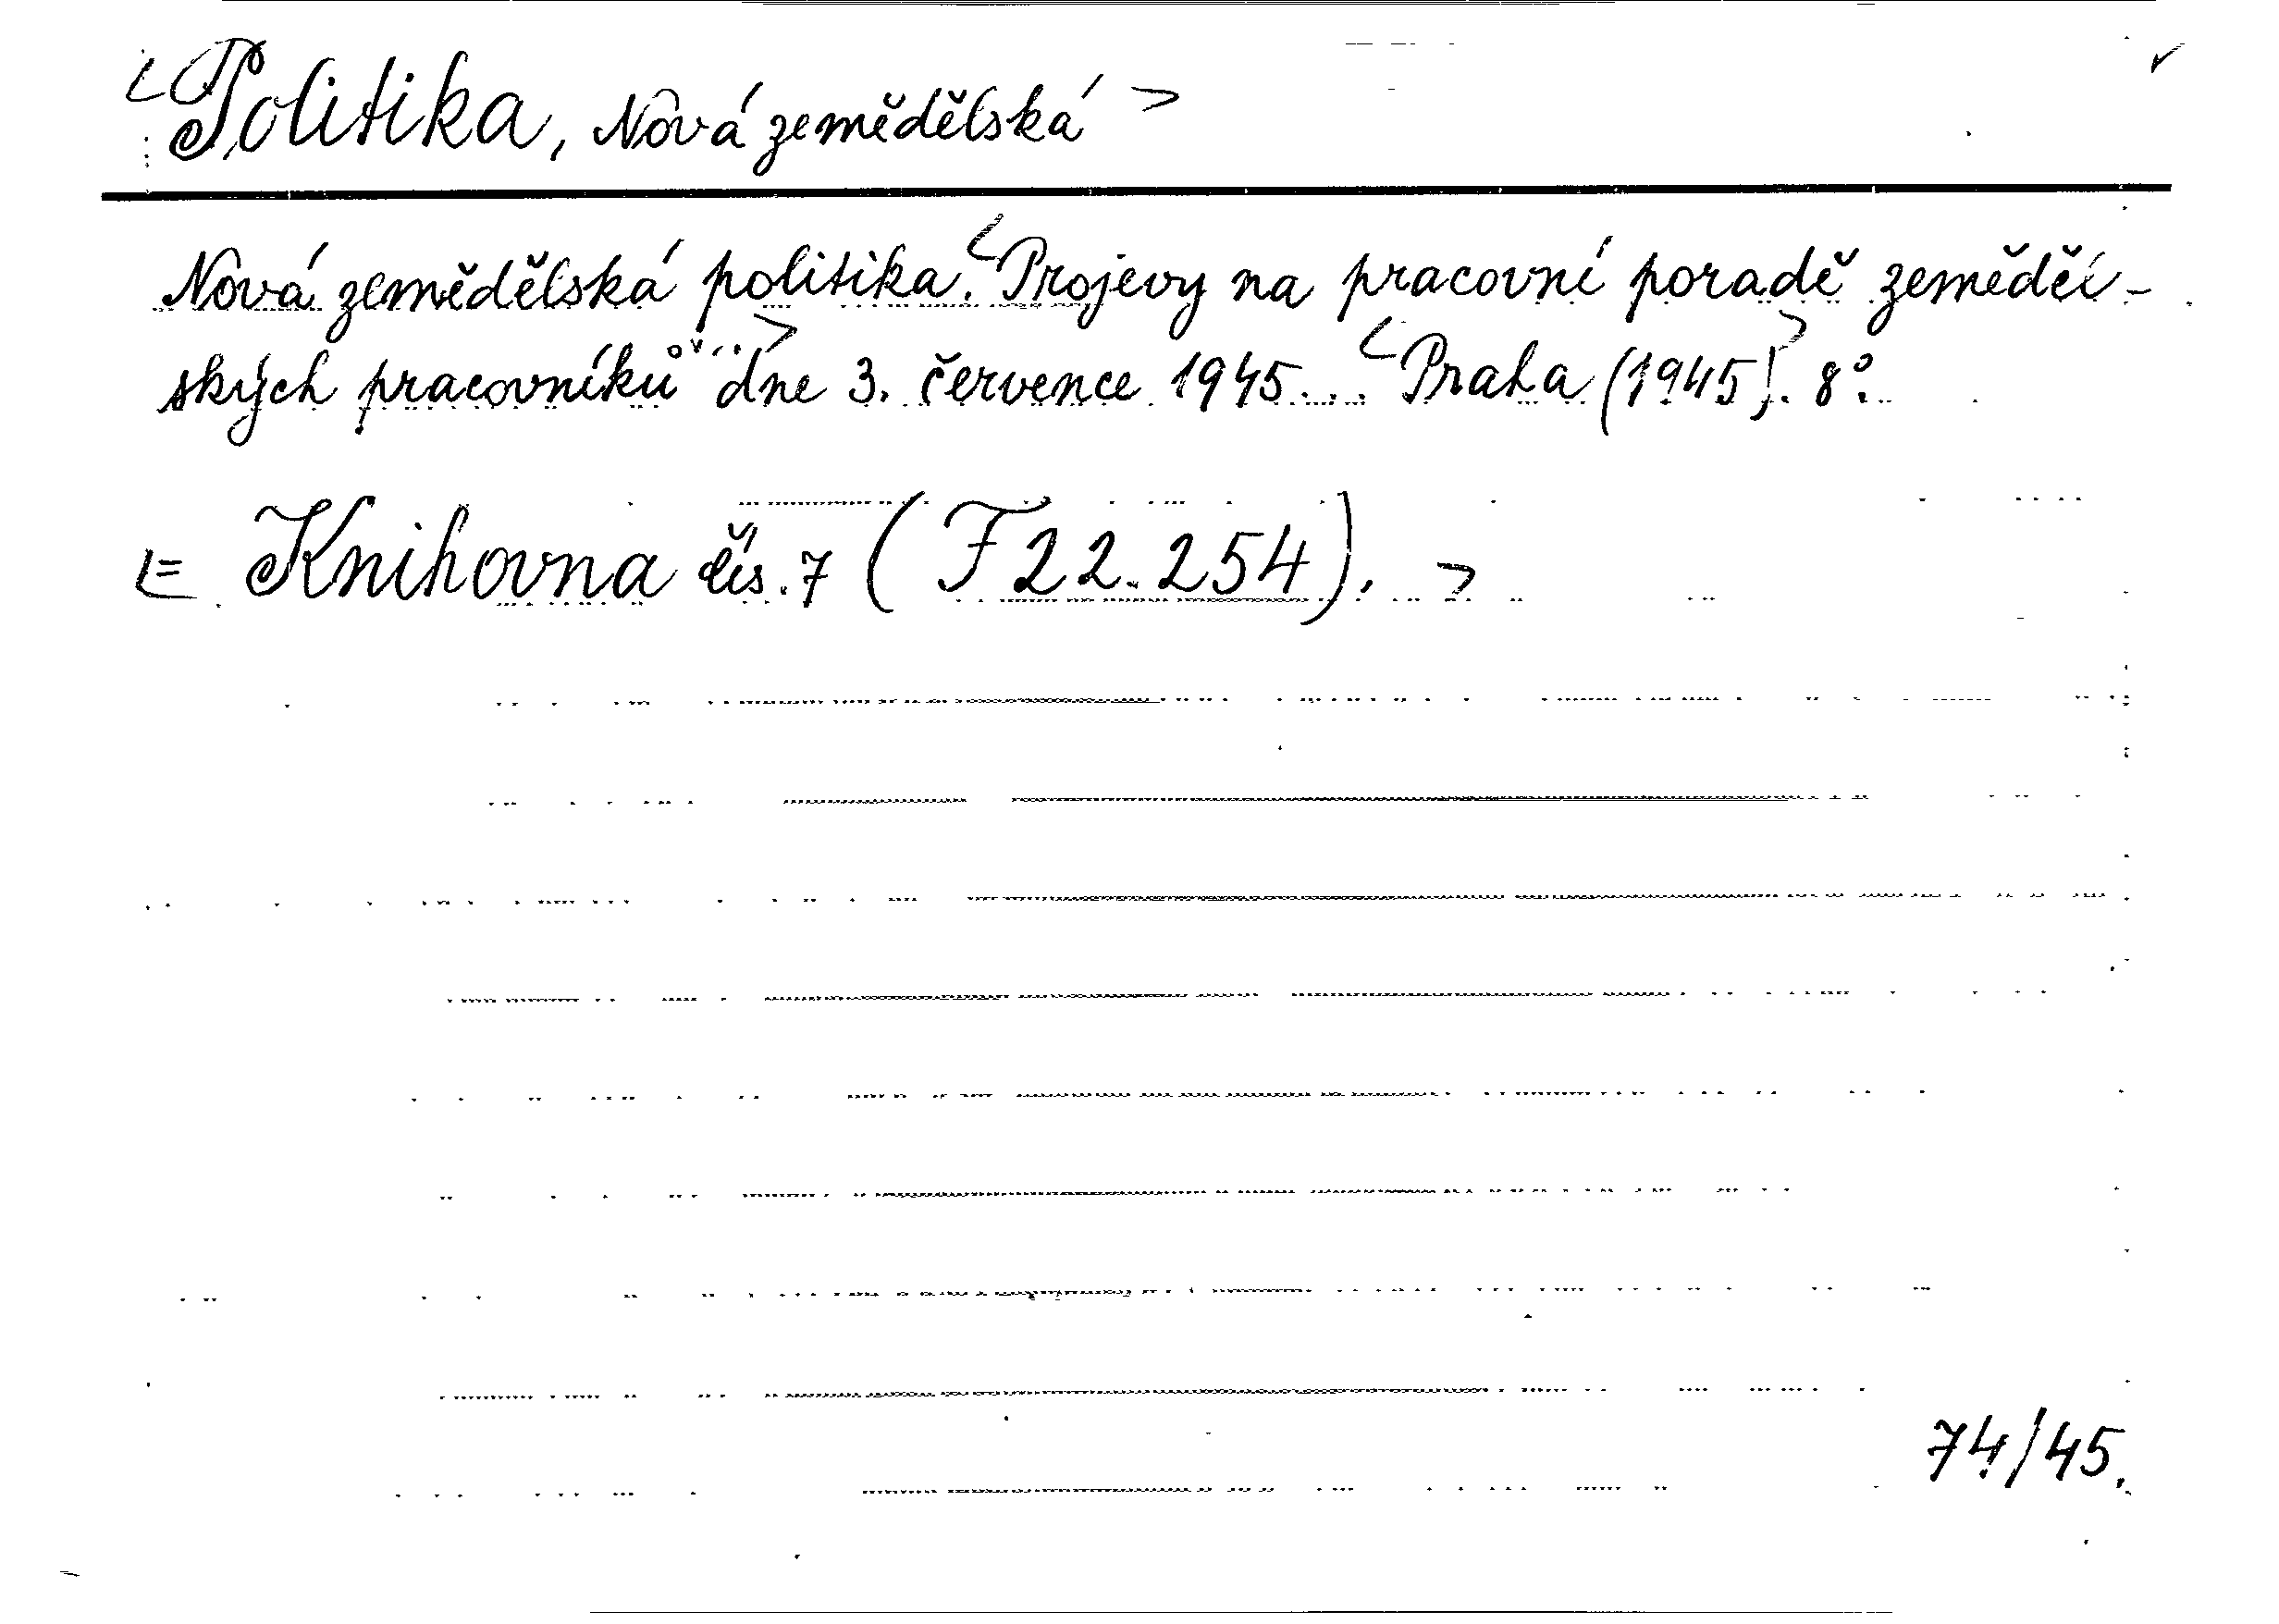 <Politika, Nová zemědělská>
Nová zemědělská politika. <Projevy na pracovní poradě zeměděl-
ských pracovníků ...> dne 3. července 1945... <Praha (1945)>. 8°.
<= Knihovna čís. 7 (F 22.254). >
74/45.